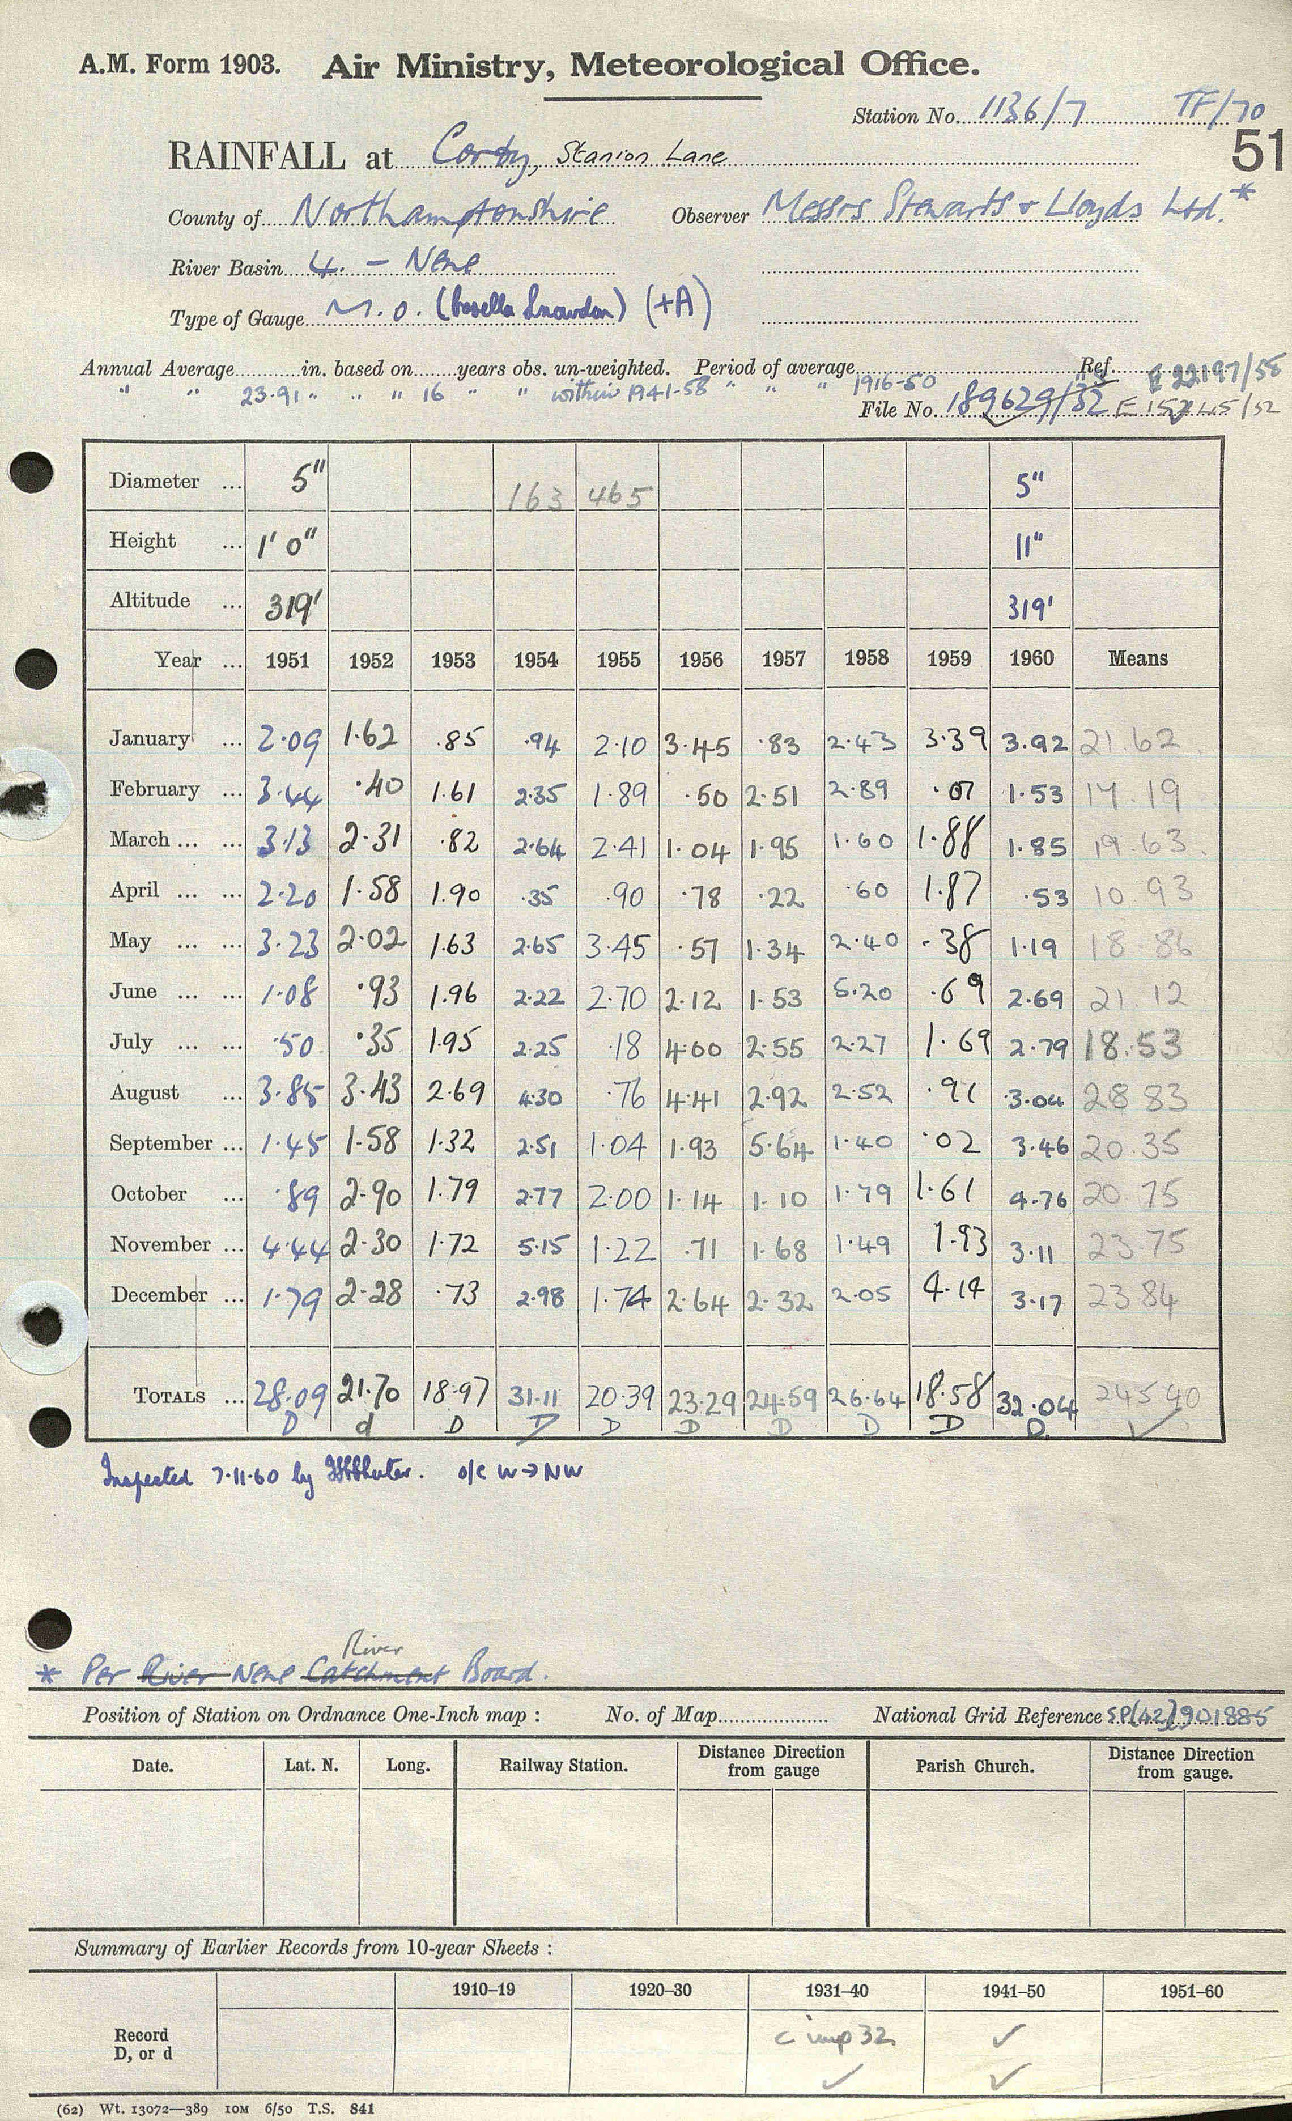 A.M. Form 1903. Air Ministry, Meteorological Office.
Station No. 1136/7 TF/70
51
RAINFALL at Corby, Stanion Lane
County of Northamptonshire Observer Messrs Stewarts & Lloyds Ltd.*
River Basin 4. — Nene
Type of Gauge M.O. (Casella Snowdon) (+A)
Annual Average in. based on years obs. un-weighted. Period of average Ref.
" " 23.91 " " " 16 " " within 1941-58 " " " 1916-50 E 22197/58
File No. 189629/32 E 15245/52
Diameter ... 5" 163 465 5"
Height ... 1' 0" 11"
Altitude ... 319' 319'
Year ... 1951 1952 1953 1954 1955 1956 1957 1958 1959 1960 Means
January ... 2.09 1.62 .85 .94 2.10 3.45 .83 2.43 3.39 3.92 21.62
February ... 3.44 .40 1.61 2.35 1.89 .50 2.51 2.89 .07 1.53 17.19
March ... ... 3.13 2.31 .82 2.64 2.41 1.04 1.95 1.60 1.88 1.85 19.63
April ... ... 2.20 1.58 1.90 .35 .90 .78 .22 .60 1.87 .53 10.93
May ... ... 3.23 2.02 1.63 2.65 3.45 .57 1.34 2.40 .38 1.19 18 86
June ... ... 1.08 .93 1.96 2.22 2.70 2.12 1.53 5.20 .69 2.69 21.12
July ... ... .50 .35 1.95 2.25 .18 4.00 2.55 2.27 1.69 2.79 18.53
August ... 3.85 3.43 2.69 4.30 .76 4.41 2.92 2.52 .91 3.04 28 83
September ... 1.45 1.58 1.32 2.51 1.04 1.93 5.64 1.40 .02 3.46 20.35
October ... .89 2.90 1.79 2.77 2.00 1.14 1.10 1.79 1.61 4.76 20.75
November ... 4.44 2.30 1.72 5.15 1.22 .71 1.68 1.49 1.93 3.11 23.75
December ... 1.79 2.28 .73 2.98 1.74 2.64 2.32 2.05 4.14 3.17 23 84
TOTALS ... 28.09 21.70 18.97 31.11 20.39 23.29 24.59 26.64 18.58 32.04 245.40
D d D D D D D D D D ✓
Inspected 7.11.60 by o/c W→NW
River
* Per River Nene Catchment Board.
Position of Station on Ordnance One-Inch map : No. of Map National Grid Reference SP(42)901885
Date. Lat. N. Long. Railway Station. Distance Direction from gauge Parish Church. Distance Direction from gauge.
Summary of Earlier Records from 10-year Sheets :
1910–19 1920–30 1931–40 1941–50 1951–60
Record c imp 32 ✓
D, or d ✓ ✓
(62) Wt. 13072—389 IOM 6/50 T.S. 841